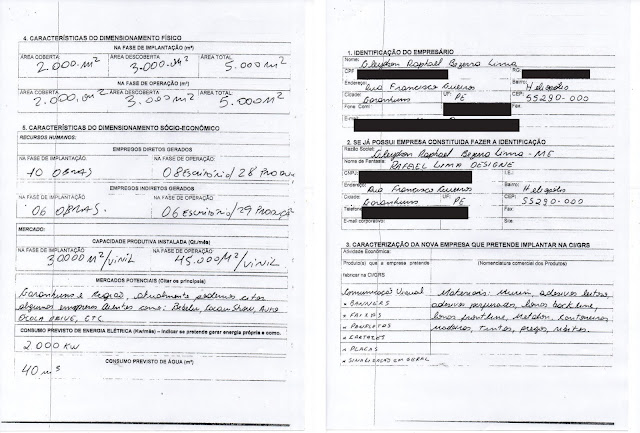 4. CARACTERÍSTICAS DO DIMENSIONAMENTO FÍSICO
NA FASE DE IMPLANTAÇÃO (m²)
ÁREA COBERTA ÁREA DESCOBERTA ÁREA TOTAL
2.000.m² 3.000.m² 5.000m²
NA FASE DE OPERAÇÃO (m²)
ÁREA COBERTA ÁREA DESCOBERTA ÁREA TOTAL
2.000.m² 3.000m² 5.000m²
5. CARACTERÍSTICAS DO DIMENSIONAMENTO SÓCIO-ECONÔMICO
RECURSOS HUMANOS:
EMPREGOS DIRETOS GERADOS
NA FASE DE IMPLANTAÇÃO NA FASE DE OPERAÇÃO
10 OBRAS 08 Escritório/28
EMPREGOS INDIRETOS GERADOS
NA FASE DE IMPLANTAÇÃO NA FASE DE OPERAÇÃO
06 OBRAS. 06 Escritório/29
MERCADO:
CAPACIDADE PRODUTIVA INSTALADA (Qt./mês)
NA FASE DE IMPLANTAÇÃO NA FASE DE OPERAÇÃO
30000 M²/VINIL 45.000M²/VINIL
MERCADOS POTENCIAIS (Citar os principais)
Garanhuns e Região, atualmente podemos citar
algumas empresas clientes como: Show, AUTO
ESCOLA DRIVE, ETC
CONSUMO PREVISTO DE ENERGIA ELÉTRICA (Kw/mês) – Indicar se pretende gerar energia própria e como.
2.000 KW
CONSUMO PREVISTO DE ÁGUA (m³)
40 m³
1. IDENTIFICAÇÃO DO EMPRESÁRIO
Nome: Cleydon Raphael Bezerra Lima
CPF RG
Endereço: Rua Francisco Bairro: Heliópolis
Cidade: Garanhuns UF: PE CEP: 55290-000
Fone Com: Fax:
E-mail
2. SE JÁ POSSUI EMPRESA CONSTITUIDA FAZER A IDENTIFICAÇÃO
Razão Social: Cleydon Raphael Bezerra Lima - ME
Nome de Fantasia: RAFAEL LIMA DESIGNE
CNPJ: I.E.:
Endereço: Rua Francisco Bairro: Heliópolis
Cidade: Garanhuns UF: PE CEP: 55290-000
Telefone Fax:
E-mail corporativo: Site:
3. CARACTERIZAÇÃO DA NOVA EMPRESA QUE PRETENDE IMPLANTAR NA CI/GRS
Atividade Econômica:
Produto(s) que a empresa pretende (Nomenclatura comercial dos Produtos)
fabricar na CI/GRS
Comunicação Visual Materiais: adesivos leitoso,
* BANNERS adesivos perfurados, lonas back line,
* FAIXAS lonas frontline, Metalon,
* PANFLETOS madeiras, Tintas, pregos, rebites.
* CARTAZES
* PLACAS
* SINALIZAÇÃO EM GERAL